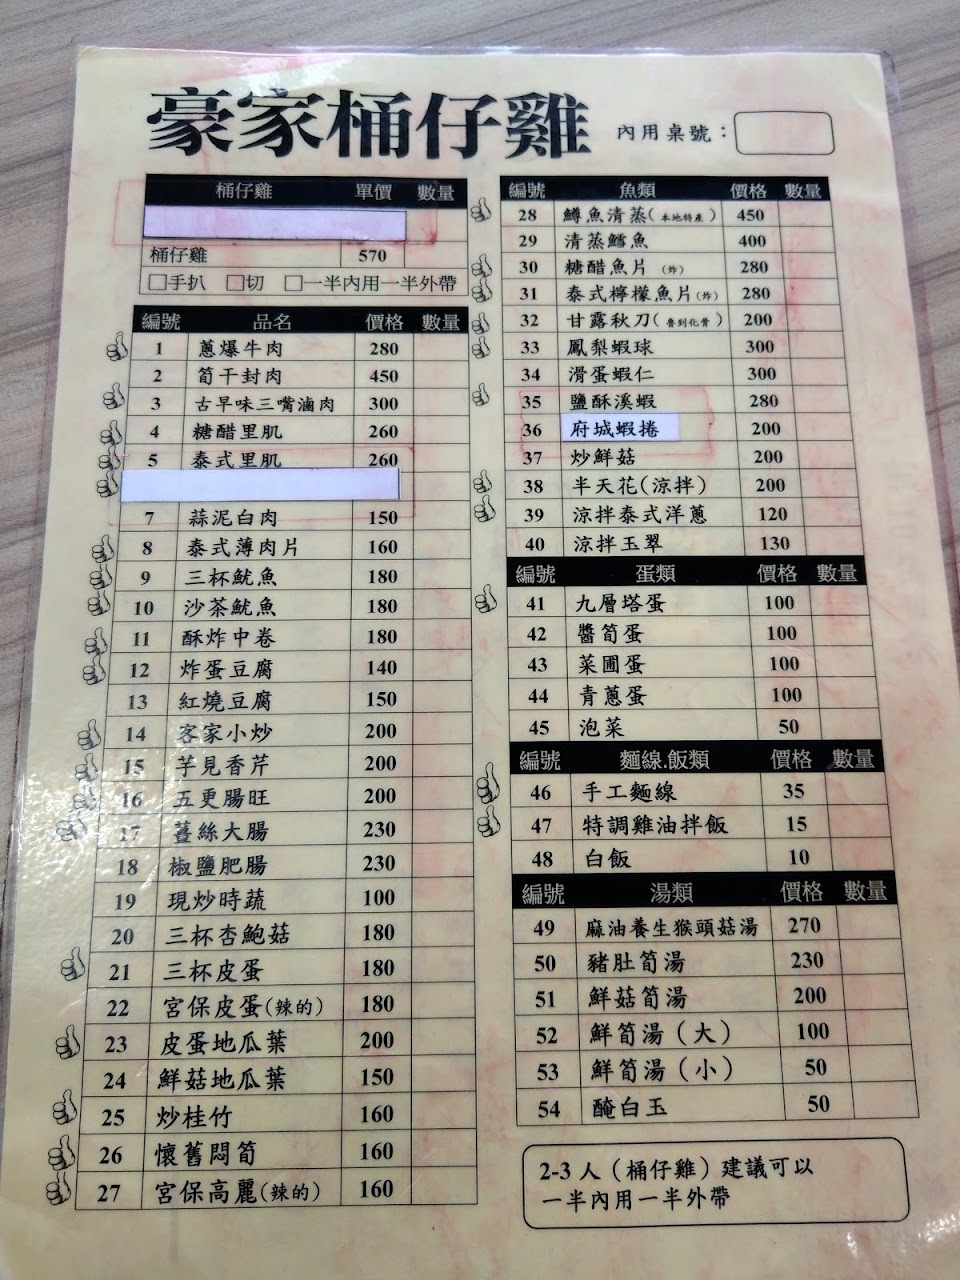 豪家桶仔雞
內用桌號：
桶仔雞 單價 數量
桶仔雞 570
□手扒 □切 □一半內用一半外帶
編號 品名 價格 數量
1 蔥爆牛肉 280
2 筍干封肉 450
3 古早味三嘴滷肉 300
4 糖醋里肌 260
5 泰式里肌 260
7 蒜泥白肉 150
8 泰式薄肉片 160
9 三杯魷魚 180
10 沙茶魷魚 180
11 酥炸中卷 180
12 炸蛋豆腐 140
13 紅燒豆腐 150
14 客家小炒 200
15 芋見香芹 200
16 五更腸旺 200
17 薑絲大腸 230
18 椒鹽肥腸 230
19 現炒時蔬 100
20 三杯杏鮑菇 180
21 三杯皮蛋 180
22 宮保皮蛋(辣的) 180
23 皮蛋地瓜葉 200
24 鮮菇地瓜葉 150
25 炒桂竹 160
26 懷舊悶筍 160
27 宮保高麗(辣的) 160
編號 魚類 價格 數量
28 鱒魚清蒸(本地特產) 450
29 清蒸鱈魚 400
30 糖醋魚片(炸) 280
31 泰式檸檬魚片(炸) 280
32 甘露秋刀(魯到化骨) 200
33 鳳梨蝦球 300
34 滑蛋蝦仁 300
35 鹽酥溪蝦 280
36 府城蝦捲 200
37 炒鮮菇 200
38 半天花(涼拌) 200
39 涼拌泰式洋蔥 120
40 涼拌玉翠 130
編號 蛋類 價格 數量
41 九層塔蛋 100
42 醬筍蛋 100
43 菜圃蛋 100
44 青蔥蛋 100
45 泡菜 50
編號 麵線.飯類 價格 數量
46 手工麵線 35
47 特調雞油拌飯 15
48 白飯 10
編號 湯類 價格 數量
49 麻油養生猴頭菇湯 270
50 豬肚筍湯 230
51 鮮菇筍湯 200
52 鮮筍湯（大） 100
53 鮮筍湯（小） 50
54 醃白玉 50
2-3人（桶仔雞）建議可以
一半內用一半外帶